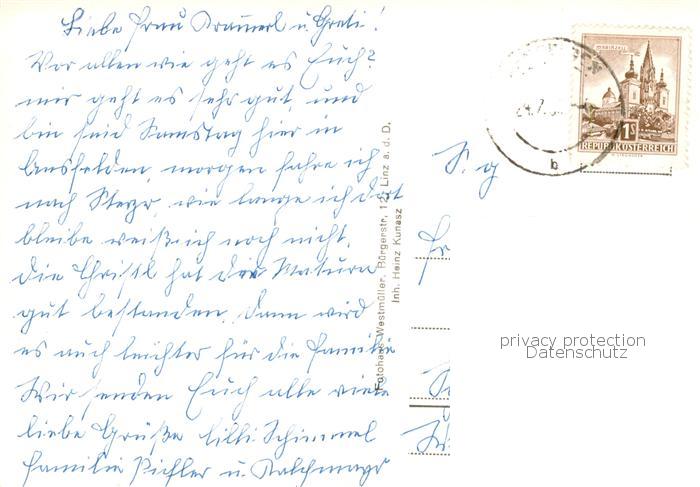 Liebe Frau Krammerl u. Greti!
Vor allen wie geht es Euch?
mir geht es sehr gut, und
bin seid Samstag hier in
Ansfelden, morgen fahre ich
nach Steyr, wie lange ich dort
bleibe weiß ich noch nicht.
die Christl hat die Matura
gut bestanden, dann wird
es auch leichter für die Familie
Wir senden Euch alle viele
liebe Grüße Lilli Schimmel
Familie Pichler u.
S. g
Fr
Fotohaus Westmüller, Bürgerstr. 12, Linz a. d. D.
Inh. Heinz Kunasz
MARIAZELL
1S
REPUBLIK ÖSTERREICH
b
privacy protection
Datenschutz